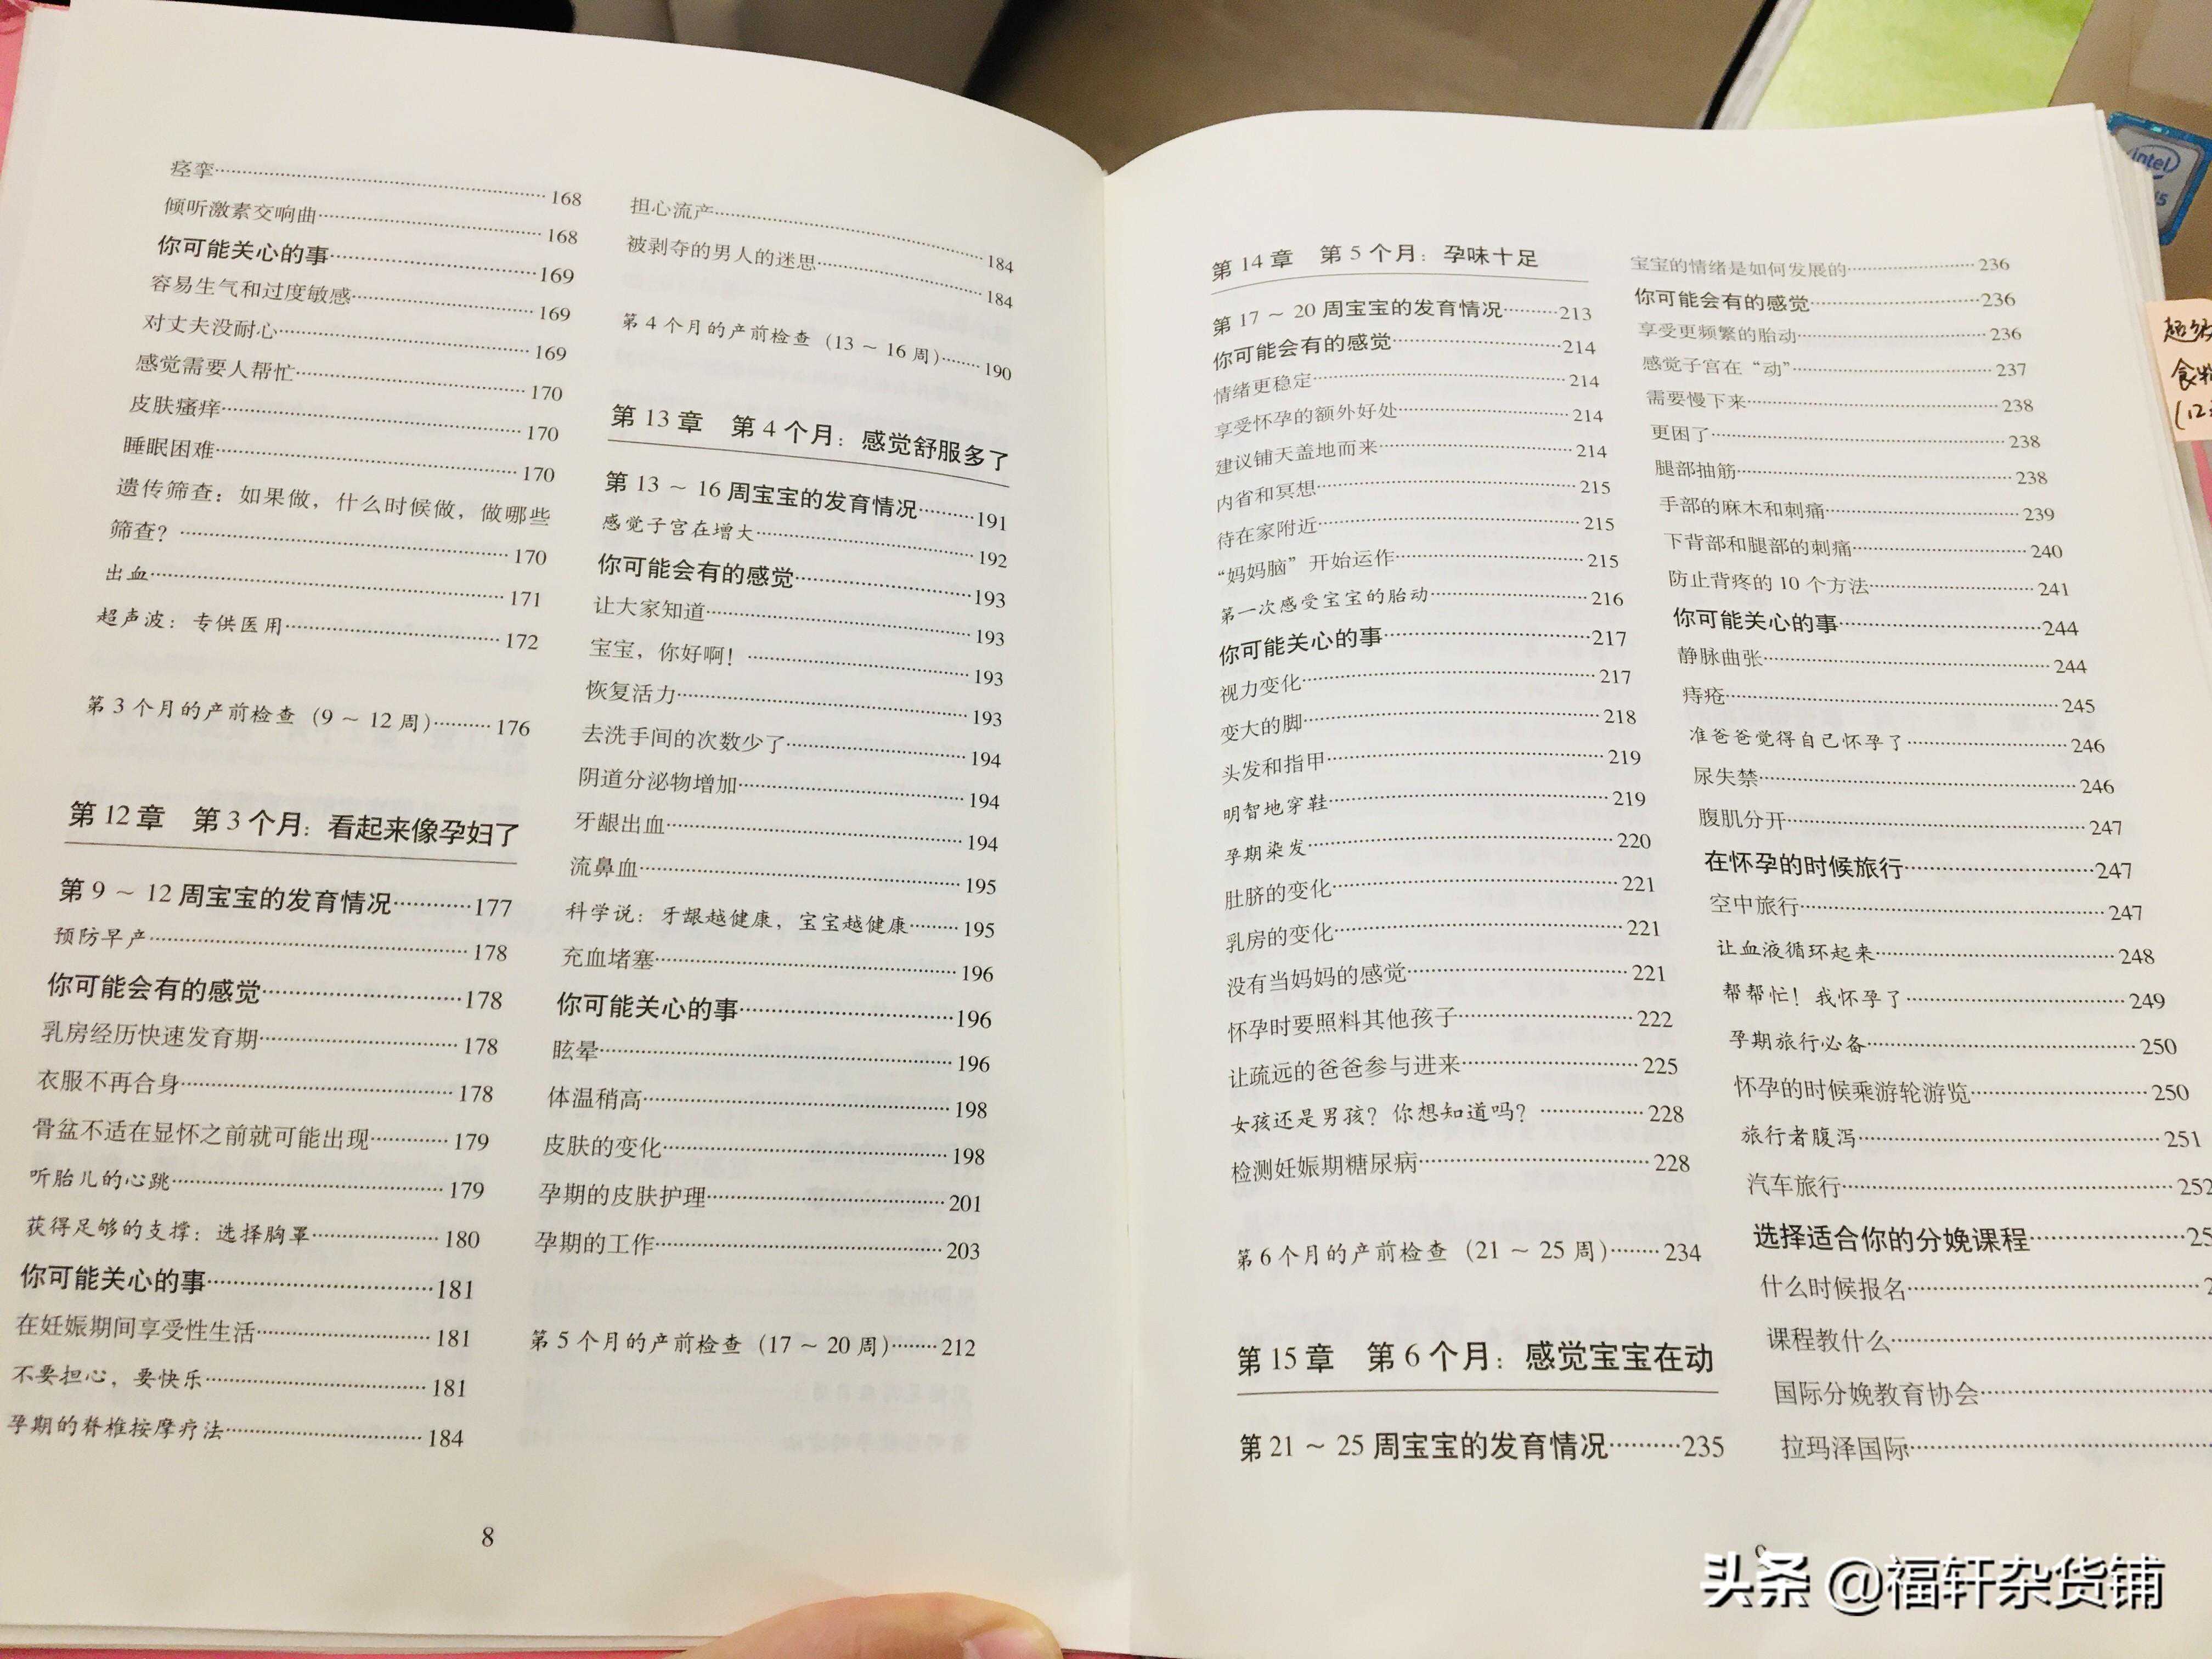 痉挛……168
倾听激素交响曲……168
你可能关心的事……169
容易生气和过度敏感……169
对丈夫没耐心……169
感觉需要人帮忙……170
皮肤瘙痒……170
睡眠困难……170
遗传筛查：如果做，什么时候做，做哪些
筛查？……170
出血……171
超声波：专供医用……172
第 3 个月的产前检查（9 ~ 12 周）……176
第 12 章 第 3 个月：看起来像孕妇了
第 9 ~ 12 周宝宝的发育情况……177
预防早产……178
你可能会有的感觉……178
乳房经历快速发育期……178
衣服不再合身……178
骨盆不适在显怀之前就可能出现……179
听胎儿的心跳……179
获得足够的支撑：选择胸罩……180
你可能关心的事……181
在妊娠期间享受性生活……181
不要担心，要快乐……181
孕期的脊椎按摩疗法……184
担心流产……184
被剥夺的男人的迷思……184
第 4 个月的产前检查（13 ~ 16 周）……190
第 13 章 第 4 个月：感觉舒服多了
第 13 ~ 16 周宝宝的发育情况……191
感觉子宫在增大……192
你可能会有的感觉……193
让大家知道……193
宝宝，你好啊！……193
恢复活力……193
去洗手间的次数少了……194
阴道分泌物增加……194
牙龈出血……194
流鼻血……195
科学说：牙龈越健康，宝宝越健康……195
充血堵塞……196
你可能关心的事……196
眩晕……196
体温稍高……198
皮肤的变化……198
孕期的皮肤护理……201
孕期的工作……203
第 5 个月的产前检查（17 ~ 20 周）……212
8
第 14 章 第 5 个月：孕味十足
第 17 ~ 20 周宝宝的发育情况……213
你可能会有的感觉……214
情绪更稳定……214
享受怀孕的额外好处……214
建议铺天盖地而来……214
内省和冥想……215
待在家附近……215
“妈妈脑”开始运作……215
第一次感受宝宝的胎动……216
你可能关心的事……217
视力变化……217
变大的脚……218
头发和指甲……219
明智地穿鞋……219
孕期染发……220
肚脐的变化……221
乳房的变化……221
没有当妈妈的感觉……221
怀孕时要照料其他孩子……222
让疏远的爸爸参与进来……225
女孩还是男孩？你想知道吗？……228
检测妊娠期糖尿病……228
第 6 个月的产前检查（21 ~ 25 周）……234
第 15 章 第 6 个月：感觉宝宝在动
第 21 ~ 25 周宝宝的发育情况……235
宝宝的情绪是如何发展的……236
你可能会有的感觉……236
享受更频繁的胎动……236
感觉子宫在“动”……237
需要慢下来……238
更困了……238
腿部抽筋……238
手部的麻木和刺痛……239
下背部和腿部的刺痛……240
防止背疼的 10 个方法……241
你可能关心的事……244
静脉曲张……244
痔疮……245
准爸爸觉得自己怀孕了……246
尿失禁……246
腹肌分开……247
在怀孕的时候旅行……247
空中旅行……247
让血液循环起来……248
帮帮忙！我怀孕了……249
孕期旅行必备……250
怀孕的时候乘游轮游览……250
旅行者腹泻……251
汽车旅行……252
选择适合你的分娩课程……25
什么时候报名……2
课程教什么……
国际分娩教育协会……
拉玛泽国际……
intel
i5
头条 @福轩杂货铺